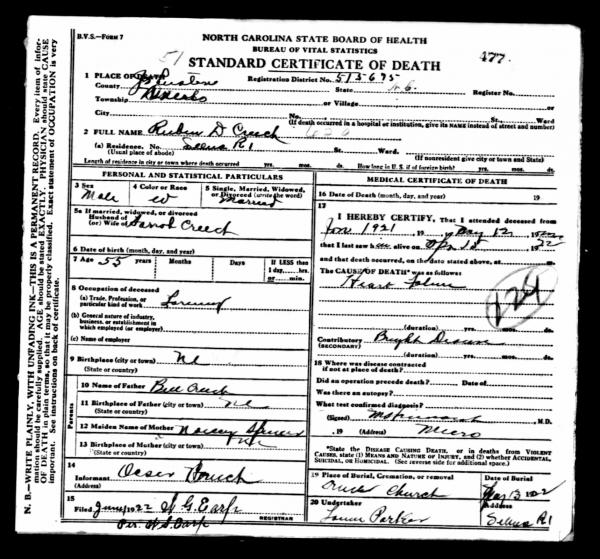 B.V.S.—FORM 7
NORTH CAROLINA STATE BOARD OF HEALTH
BUREAU OF VITAL STATISTICS
51
STANDARD CERTIFICATE OF DEATH
477
1 PLACE OF DEATH
Registration District No. 515695
County Johnston
State N. C.
Register No.
Township
or Village
City
No. St. Ward.
(If death occurred in a hospital or institution, give its NAME instead of street and number)
2 FULL NAME Rubin D Creech
(a) Residence. No. Selma R1 St. Ward.
(Usual place of abode)
(If nonresident give city or town and State)
Length of residence in city or town where death occurred yrs. mos. ds. How long in U. S. if of foreign birth? yrs. mos. ds.
PERSONAL AND STATISTICAL PARTICULARS
3 Sex
Male
4 Color or Race
W
5 Single, Married, Widowed, or Divorced (write the word)
Married
5a If married, widowed, or divorced
Husband of
(or) Wife of Sarah Creech
6 Date of birth (month, day, and year)
7 Age 55 years Months Days If LESS than 1 day, hrs. or min.
8 Occupation of deceased
(a) Trade, Profession, or particular kind of work Farming
(b) General nature of industry, business, or establishment in which employed (or employer)
(c) Name of employer
9 Birthplace (city or town) NC
(State or country)
Parents
10 Name of Father Bill Creech
11 Birthplace of Father (city or town) NC
(State or country)
12 Maiden Name of Mother
13 Birthplace of Mother (city or town) NC
(State or country)
14
Informant
(Address)
15
Filed June 1 1922 W G Earp
Per W S Earp REGISTRAR
MEDICAL CERTIFICATE OF DEATH
16 Date of Death (month, day, and year) 19
17
I HEREBY CERTIFY, That I attended deceased from
Jan 1921 19 May 12 1922
that I last saw him alive on Apr 15 1922
and that death occurred, on the date stated above, at m.
The CAUSE OF DEATH* was as follows:
Heart Failure
124
(duration) yrs. mos. ds.
Contributory Bright Disease
(SECONDARY)
(duration) yrs. mos. ds.
18 Where was disease contracted
if not at place of death?
Did an operation precede death? Date of
Was there an autopsy?
What test confirmed diagnosis?
(Signed) M.D.
, 19 (Address) Micro
*State the DISEASE CAUSING DEATH, or in deaths from VIOLENT CAUSES, state (1) MEANS AND NATURE OF INJURY, and (2) whether ACCIDENTAL, SUICIDAL, or HOMICIDAL. (See reverse side for additional space.)
19 Place of Burial, Cremation, or removal
Church
Date of Burial
May 13 1922
20 Undertaker
Parker
Address
Selma R1
N. B.—WRITE PLAINLY, WITH UNFADING INK—THIS IS A PERMANENT RECORD. Every item of information should be carefully supplied. AGE should be stated EXACTLY. PHYSICIAN should state CAUSE OF DEATH in plain terms, so that it may be properly classified. Exact statement of OCCUPATION is very important. See instructions on back of certificate.